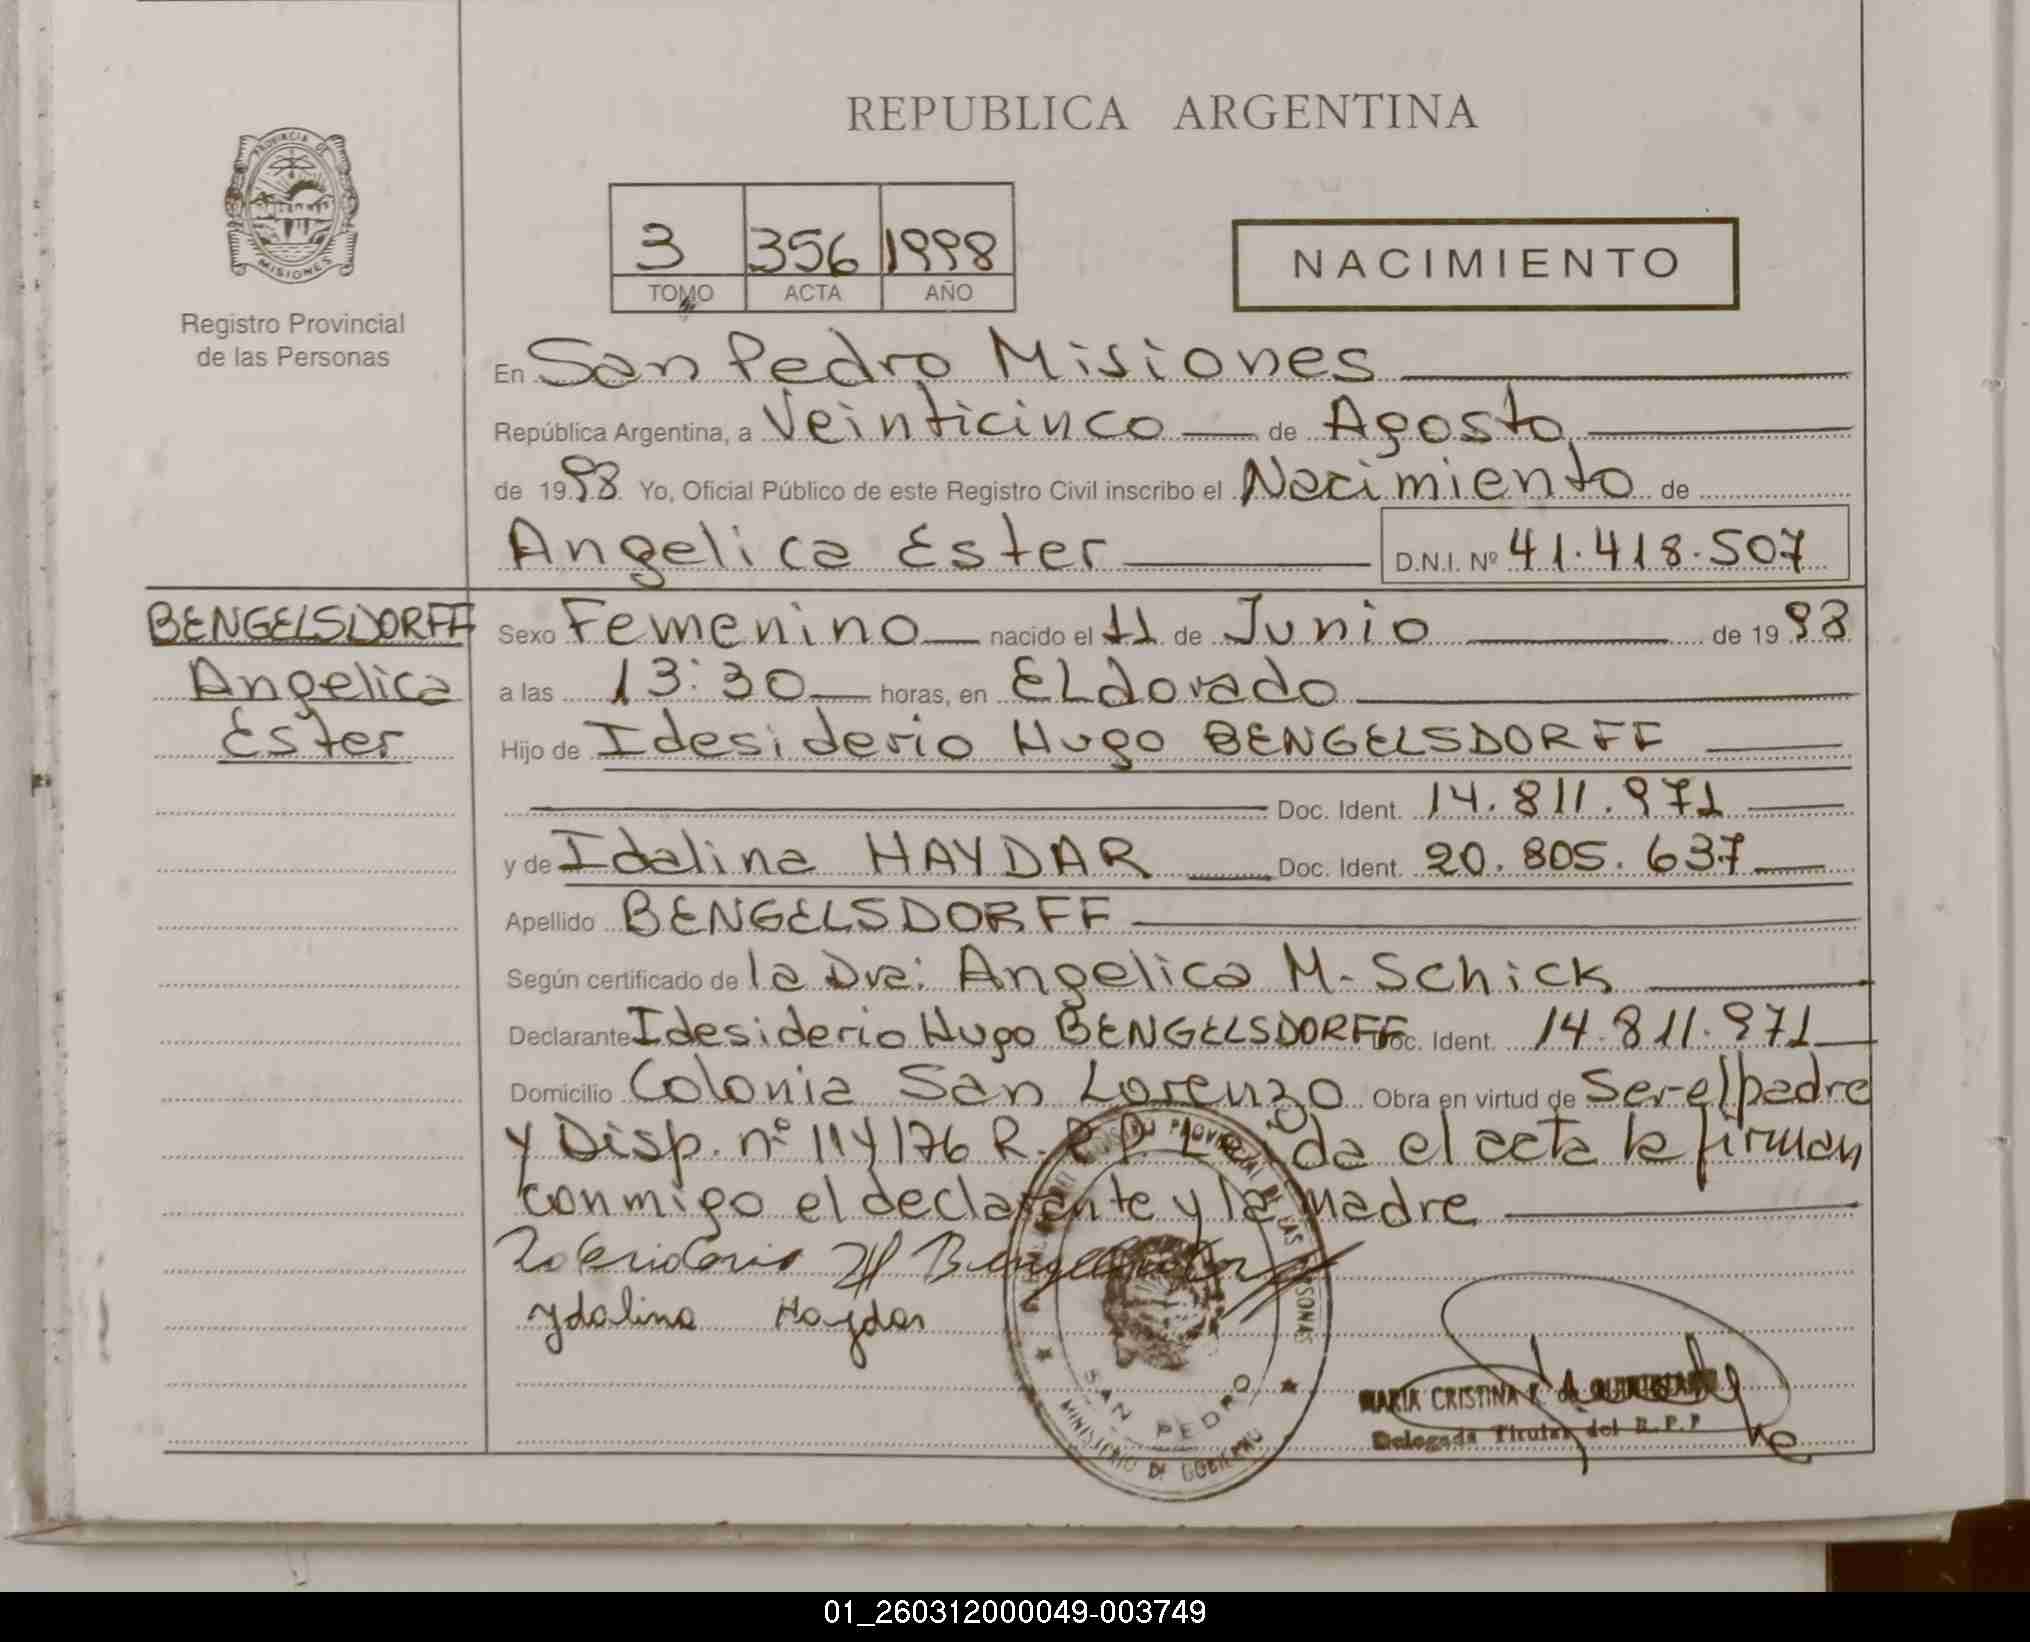 REPUBLICA ARGENTINA
PROVINCIA DE
MISIONES
Registro Provincial
de las Personas
3 356 1998
TOMO ACTA AÑO
NACIMIENTO
En San Pedro Misiones
República Argentina, a Veinticinco de Agosto
de 1998 Yo, Oficial Público de este Registro Civil inscribo el Nacimiento de
Angelica Ester D.N.I. Nº 41.418.507
BENGELSDORFF
Angelica
Ester
Sexo Femenino nacido el 11 de Junio de 1998
a las 13:30 horas, en ELdorado
Hijo de Idesiderio Hugo BENGELSDORFF
Doc. Ident. 14.811.971
y de Idalina HAYDAR Doc. Ident. 20.805.637
Apellido BENGELSDORFF
Según certificado de la Dra: Angelica M. Schick
Declarante Idesiderio Hugo BENGELSDORFF Doc. Ident. 14.811.971
Domicilio Colonia San Lorenzo Obra en virtud de Ser el padre
y Disp. nº 114/76 R. R.P. Leida el acta la firman
conmigo el declarante y la madre
Ydalina Haydar
REGISTRO PROVINCIAL DE LAS PERSONAS
SAN PEDRO
MINISTERIO DE GOBIERNO
MARIA CRISTINA
Delegada Titular del R.P.P
01_260312000049-003749